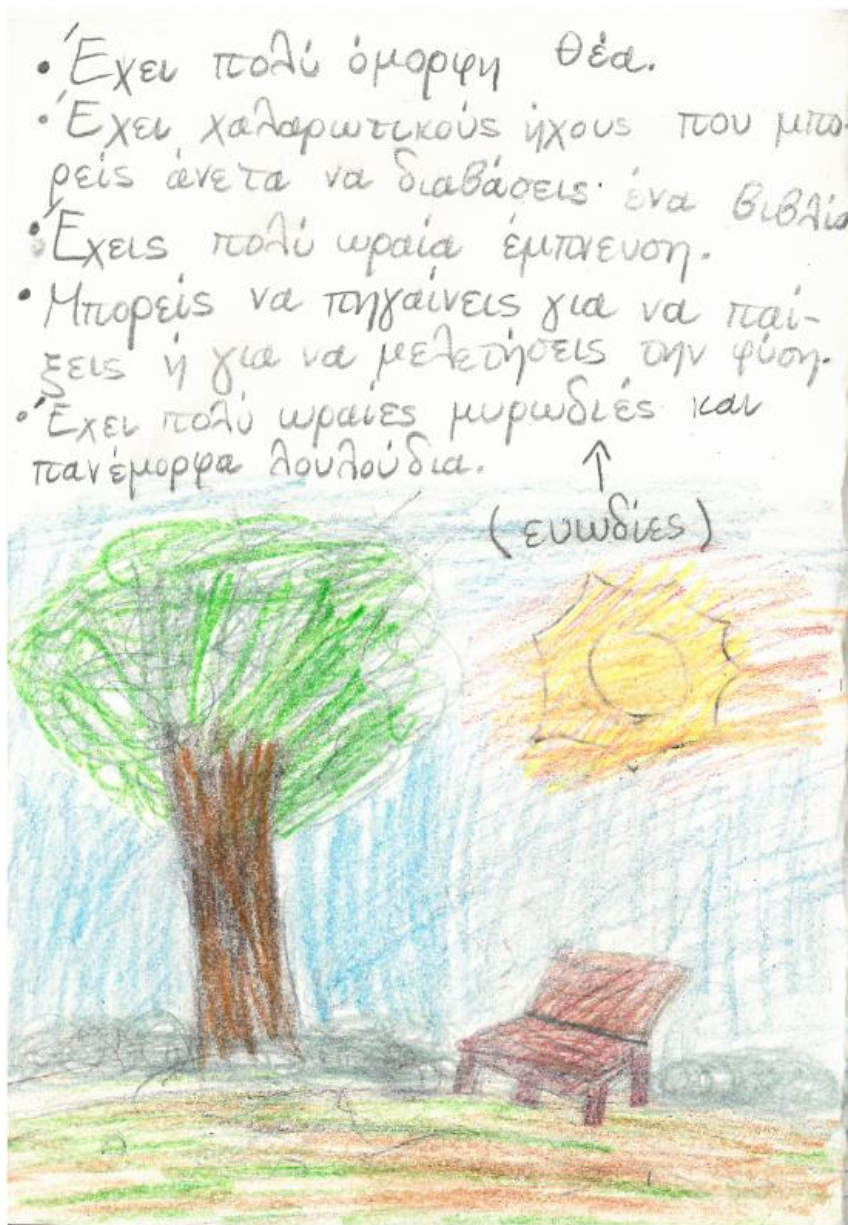 • Έχει πολύ όμορφη θέα.
• Έχει χαλαρωτικούς ήχους που μπο-
ρείς άνετα να διαβάσεις ένα βιβλίο
• Έχεις πολύ ωραία έμπνευση.
• Μπορείς να πηγαίνεις για να παί-
ξεις ή για να μελετήσεις την φύση.
• Έχει πολύ ωραίες μυρωδιές και
πανέμορφα λουλούδια. ↑
(ευωδίες)